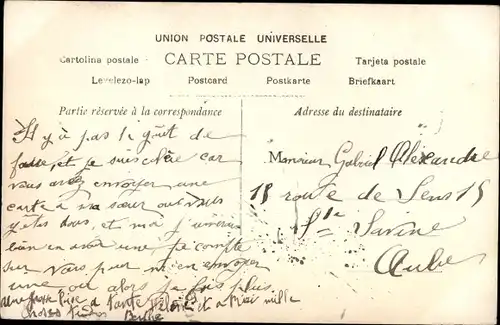 UNION POSTALE UNIVERSELLE
CARTE POSTALE
Cartolina postale
Tarjeta postale
Levelezo-lap
Postcard
Postkarte
Briefkaart
Partie réservée à la correspondance
Il y a pas le goût de
et je suis colère car
vous avez envoyer une
carte a ma sœur ou vous
y êtes tous, et moi j'aimerai
bien en avoir une je compte
sur vous pour m'en envoyer
une ou alors je fais plus
une grosse bise a Tante et mille
choses
Berthe
Adresse du destinataire
Monsieur Gabriel Alexandre
15 route de Sens 15
Ste Savine
Aube